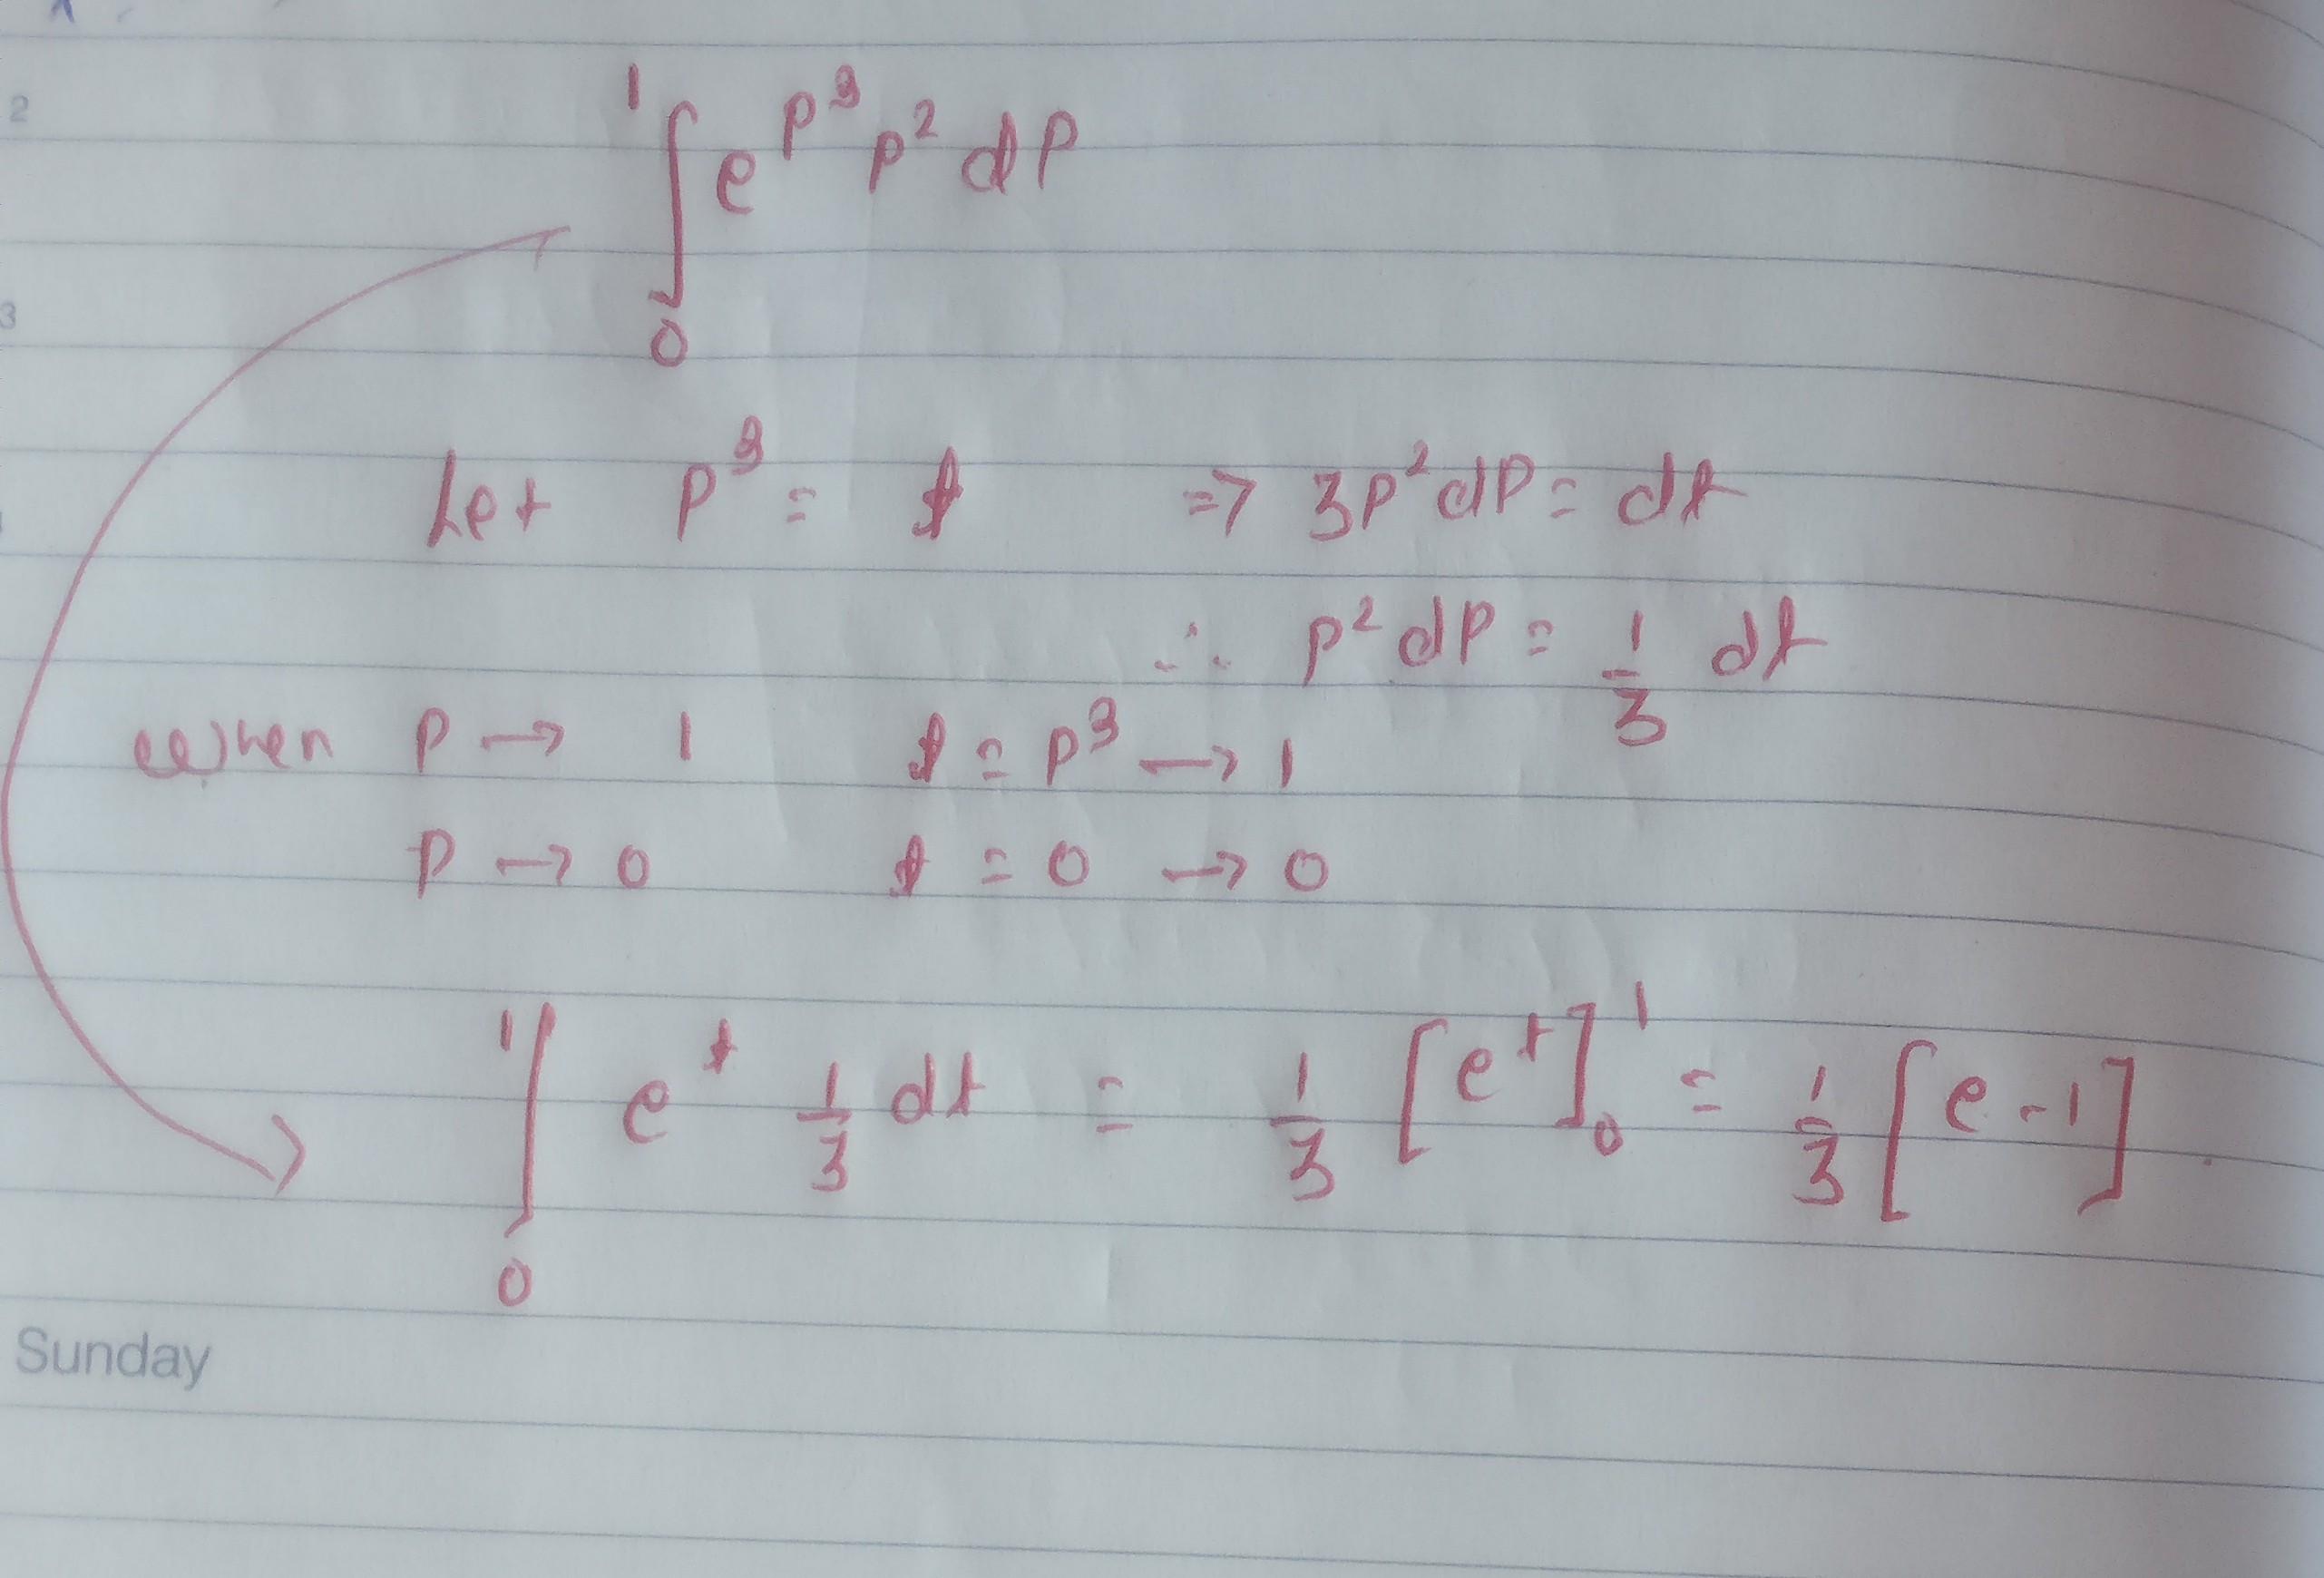 2
∫₀¹ e^{p³} p² dp
3
Let p³ = t => 3p² dp = dt
∴ p² dp = 1/3 dt
when p → 1 t = p³ → 1
p → 0 t = 0 → 0
∫₀¹ e^t 1/3 dt = 1/3 [e^t]₀¹ = 1/3 [e - 1].
Sunday